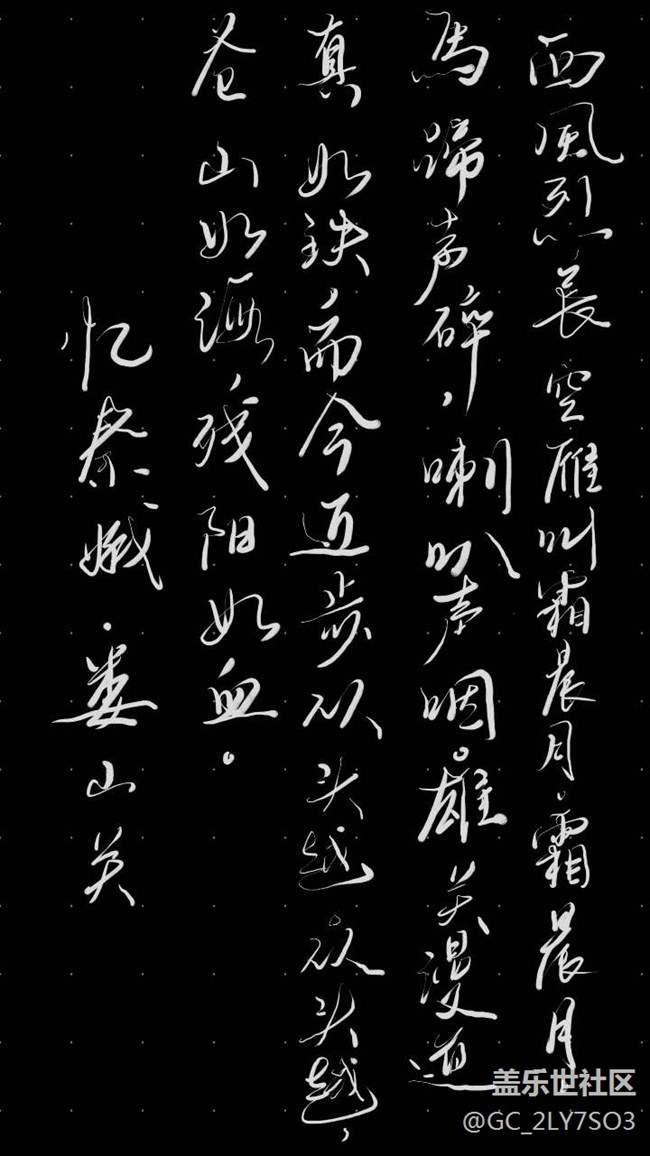 西風烈長空雁叫霜晨月,霜晨月,
馬蹄声碎,喇叭声咽。雄关漫道
真如铁,而今迈步从头越从头越,
苍山如海,残阳如血。
忆秦娥·娄山关
盖乐世社区
@GC_2LY7SO3